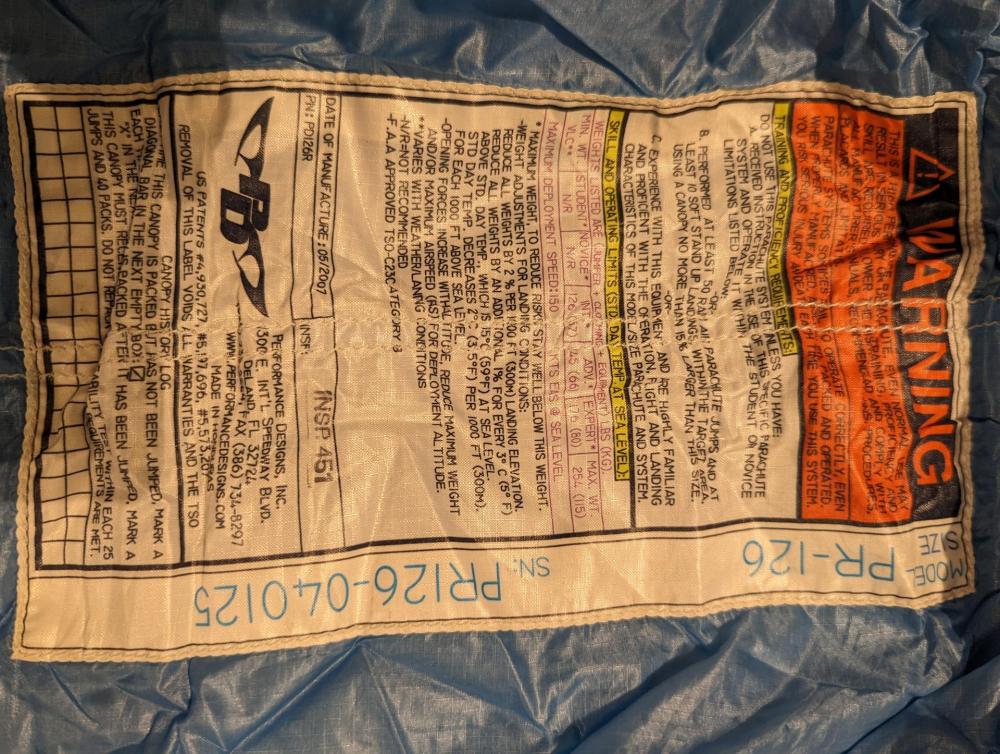 WARNING
RESULT
TRAINING AND PROFICIENCY REQUIREMENTS:
DO NOT USE THIS PARACHUTE SYSTEM UNLESS YOU HAVE:
A. RECEIVED INSTRUCTION IN THE USE OF THIS SPECIFIC PARACHUTE
SYSTEM AND OPERATION WITHIN THE STUDENT OR NOVICE
LIMITATIONS LISTED BELOW,
-OR-
B. PERFORMED AT LEAST 50 RAM AIR PARACHUTE JUMPS AND AT
LEAST 10 SOFT STAND UP LANDINGS, WITHIN THE TARGET AREA,
USING A CANOPY NO MORE THAN 15% LARGER THAN THIS SIZE,
-OR-
C. EXPERIENCE WITH THIS EQUIPMENT AND ARE HIGHLY FAMILIAR
AND PROFICIENT WITH THE OPERATION, FLIGHT AND LANDING
CHARACTERISTICS OF THIS TYPE/SIZE PARACHUTE AND SYSTEM.
SKILL AND OPERATING LIMITS (STD DAY TEMP AT SEA LEVEL):
WEIGHTS LISTED ARE (JUMPER + CLOTHING + EQUIPMENT) LBS (KG).
MIN. WT. STUDENT* NOVICE* INT.* ADV.* EXPERT* MAX. WT.
VLC** N/R N/R 126 (57) 145 (66) 176 (80) 254 (115)
MAXIMUM DEPLOYMENT SPEED: 150 KNOTS EAS @ SEA LEVEL
* MAXIMUM WEIGHT TO REDUCE RISK; STAY WELL BELOW THIS WEIGHT.
-WEIGHT ADJUSTMENTS FOR LANDING CONDITIONS:
REDUCE ALL WEIGHTS BY 2% PER 1000 FT (300M) LANDING ELEVATION.
REDUCE ALL WEIGHTS BY AN ADDITIONAL 1% FOR EVERY 3°C (5°F)
ABOVE STD. DAY TEMP., WHICH IS 15°C (59°F) AT SEA LEVEL.
STD DAY TEMP. DECREASES 2°C (3.5°F) PER 1000 FT (300M).
FOR EACH 1000 FT ABOVE SEA LEVEL.
-OPENING FORCES INCREASE WITH ALTITUDE, REDUCE MAXIMUM WEIGHT
AND/OR MAXIMUM AIRSPEED (EAS) FOR DEPLOYMENT ALTITUDE.
**VARIES WITH WEATHER/LANDING CONDITIONS
-N/R=NOT RECOMMENDED
-F.A.A APPROVED TSO-C23C CATEGORY B
DATE OF MANUFACTURE: 05/2007
INSP.: INSP. 451
PN: PD126R
PD
PERFORMANCE DESIGNS, INC.
1300 E. INT'L SPEEDWAY BLVD.
DELAND, FL 32724
FAX (386) 734-8297
WWW.PERFORMANCEDESIGNS.COM
MADE IN HONDURAS
US PATENTS #4,930,727, #5,197,696, #5,573,207
REMOVAL OF THIS LABEL VOIDS ALL WARRANTIES AND THE TSO
CANOPY HISTORY LOG
EACH TIME THIS CANOPY IS PACKED BUT HAS NOT BEEN JUMPED, MARK A
DIAGONAL BAR IN THE NEXT EMPTY BOX.
"X" IN THE IF REPACKED AFTER IT HAS BEEN JUMPED, MARK A
THIS CANOPY MUST WITHIN EACH 25
JUMPS AND 40 PACKS. DO NOT REPACK REQUIREMENTS ARE MET.
MODEL SIZE PR-126
SN: PR126-040125